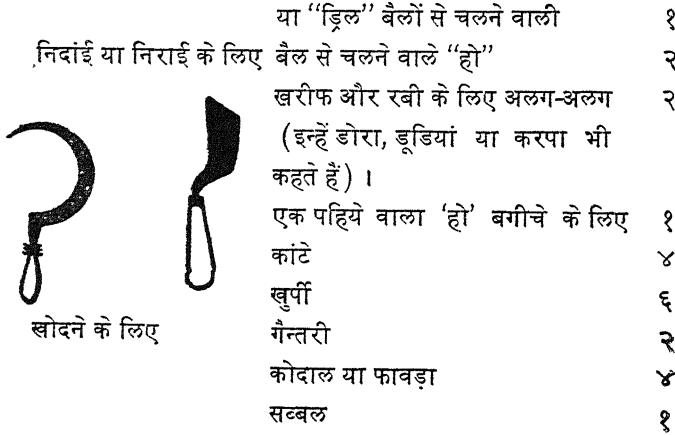 या “ड्रिल” बैलों से चलने वाली १
निदांई या निराई के लिए बैल से चलने वाले “हो” २
खरीफ और रबी के लिए अलग-अलग २
(इन्हें डोरा, डूडियां या करपा भी
कहते हैं) ।
एक पहिये वाला ‘हो’ बगीचे के लिए १
कांटे ४
खुर्पी ६
खोदने के लिए गैन्तरी २
कोदाल या फावड़ा ४
सब्बल १